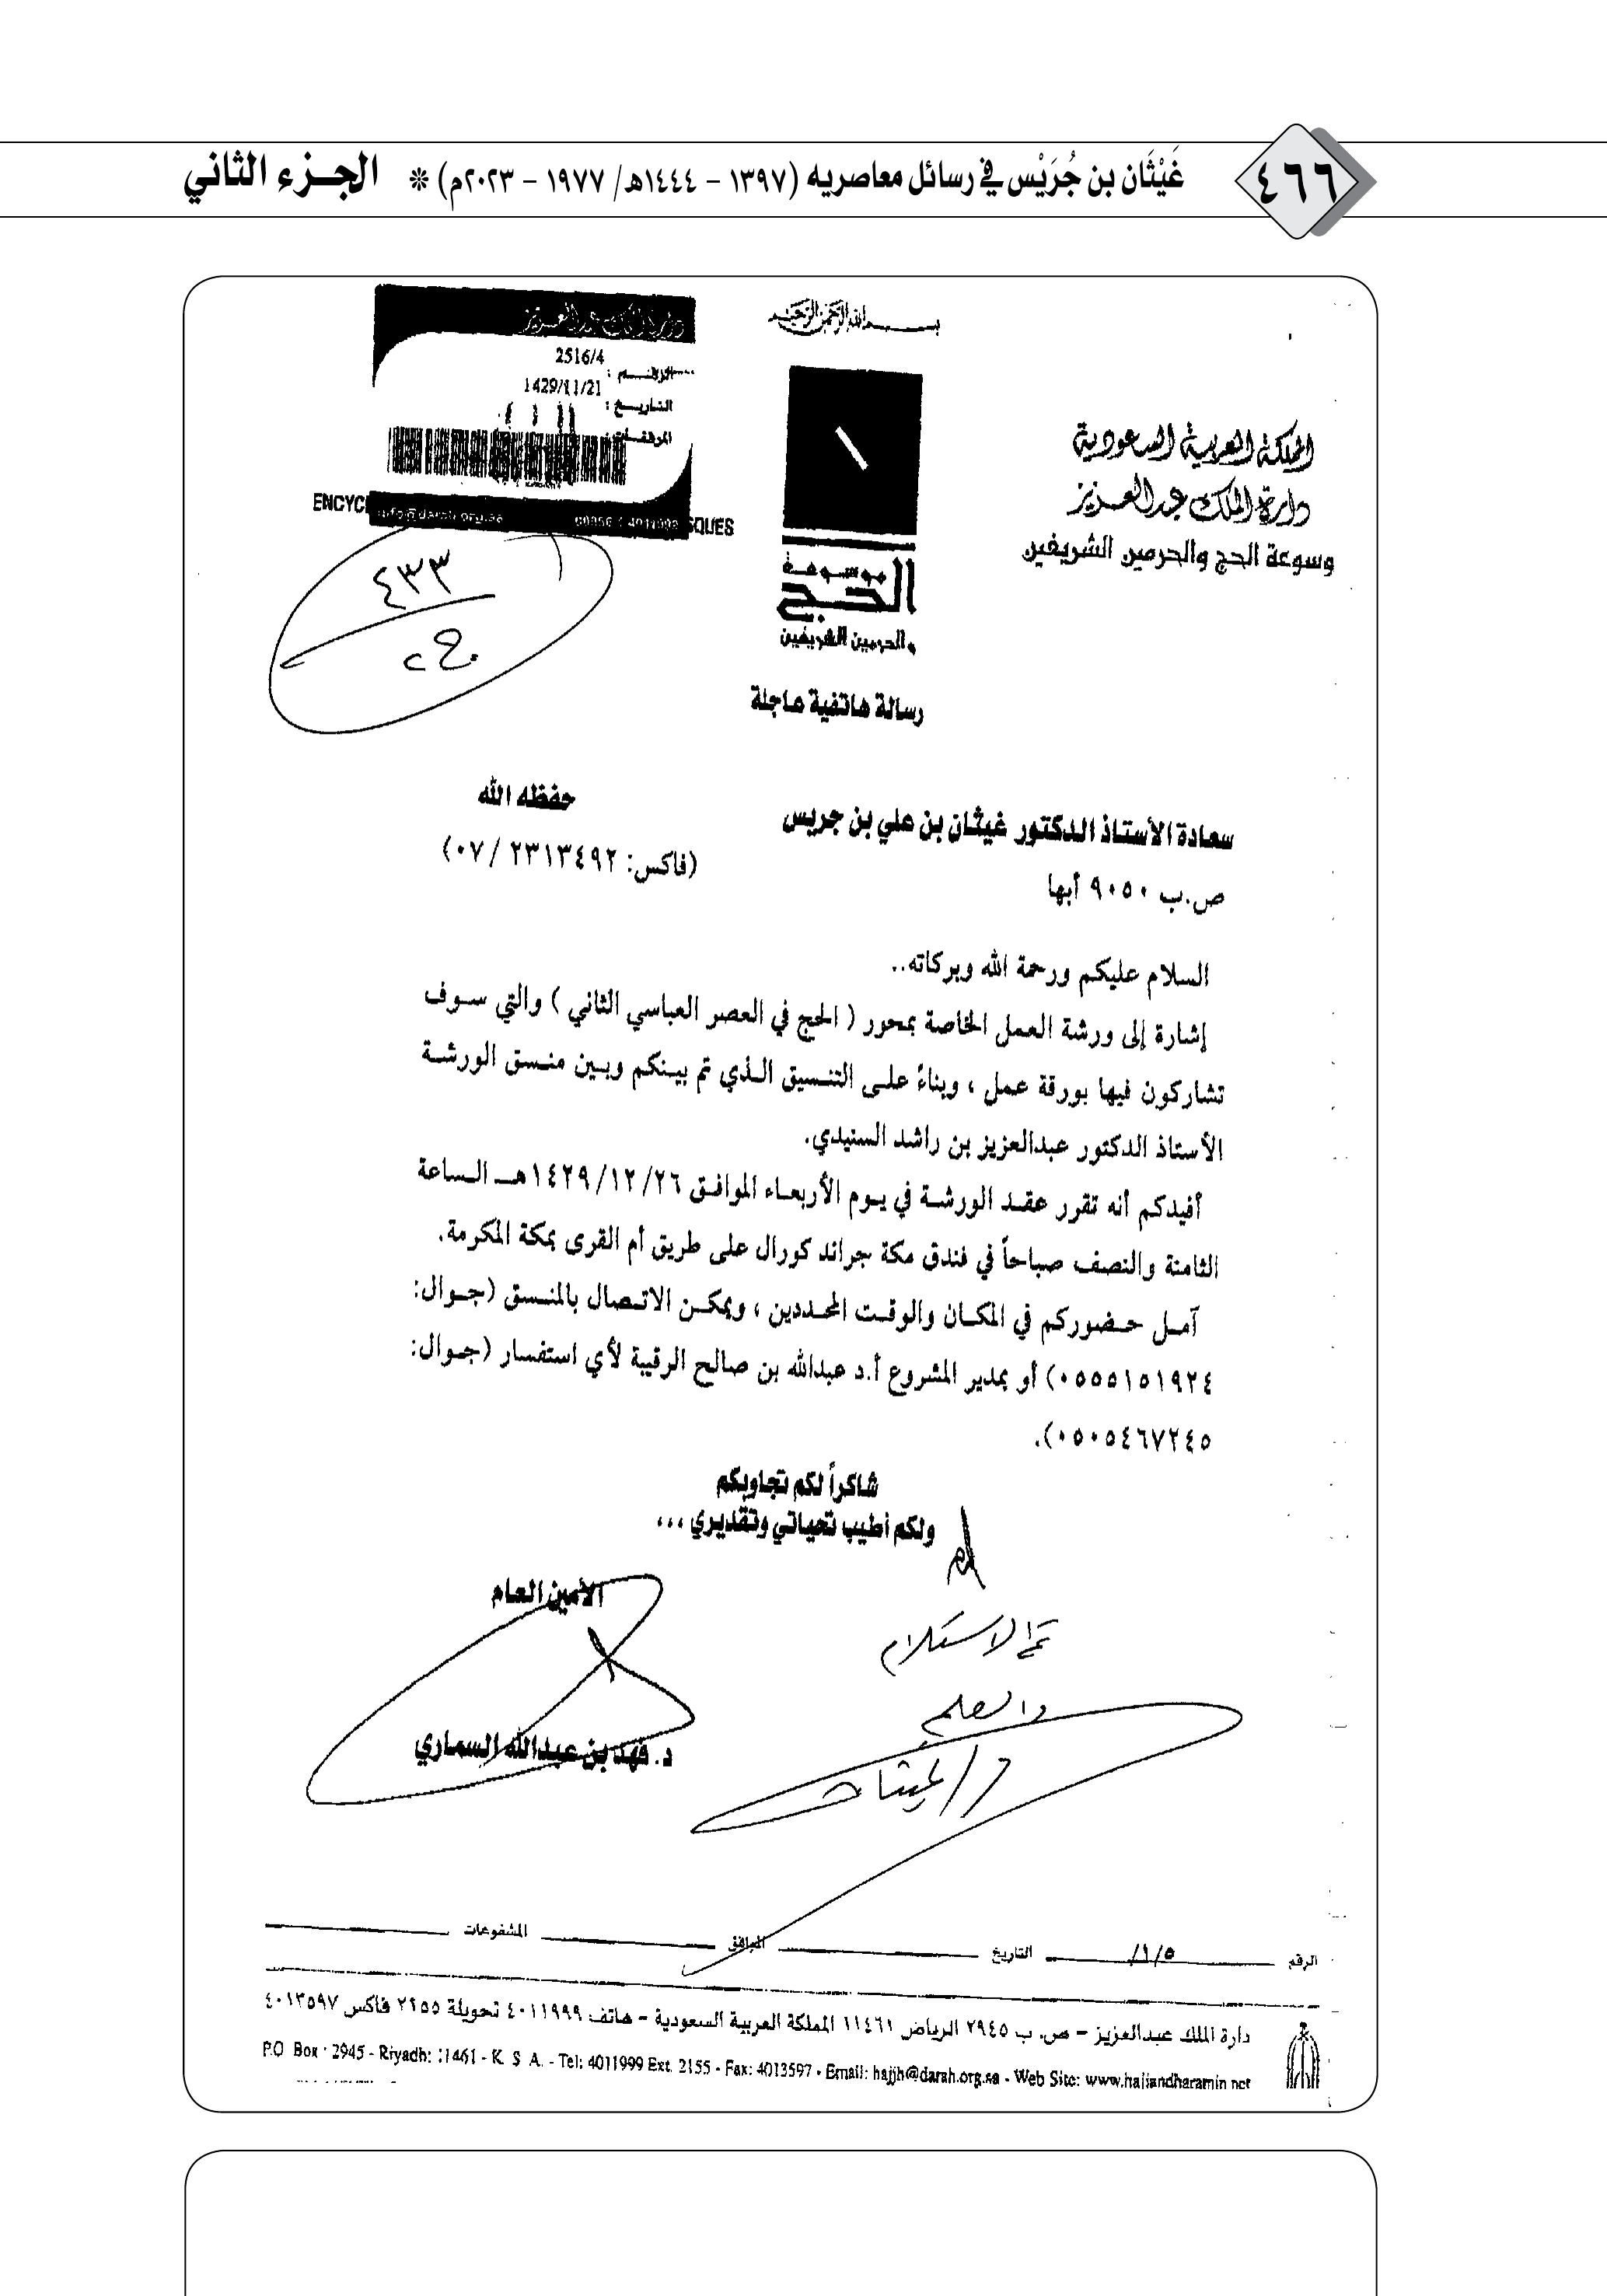 ٤٦٦
غَيْثَان بن جُرَيْس في رسائل معاصريه (١٣٩٧ - ١٤٤٤هـ/ ١٩٧٧ - ٢٠٢٣م) * الجزء الثاني
بسم الله الرحمن الرحيم
المملكة العربية السعودية
دارة الملك عبدالعزيز
وسوعة الحج والحرمين الشريفين
دارة الملك عبدالعزيز
الرقم : 2516/4
التاريخ : 1429/11/21
المرفقات
info@darah.org.sa
ENCYC
SQUES
موسوعة
الحج
والحرمين الشريفين
٤٣٣
رسالة هاتفية عاجلة
سعادة الأستاذ الدكتور غيثان بن علي بن جريس حفظه الله
ص.ب ٩٠٥٠ أبها (فاكس: ٢٣١٣٤٩٢ /٠٧)
السلام عليكم ورحمة الله وبركاته..
إشارة إلى ورشة العمل الخاصة بمحور ( الحج في العصر العباسي الثاني ) والتي سوف
تشاركون فيها بورقة عمل ، وبناءً على التنسيق الذي تم بينكم وبين منسق الورشة
الأستاذ الدكتور عبدالعزيز بن راشد السنيدي.
أفيدكم أنه تقرر عقد الورشة في يوم الأربعاء الموافق ١٤٢٩/١٢/٢٦هـ الساعة
الثامنة والنصف صباحاً في فندق مكة جراند كورال على طريق أم القرى بمكة المكرمة.
آمل حضوركم في المكان والوقت المحددين ، ويمكن الاتصال بالمنسق (جوال:
٠٥٥٥١٥١٩٢٤) أو بمدير المشروع أ.د عبدالله بن صالح الرقيبة لأي استفسار (جوال:
٠٥٠٥٤٦٧٢٤٥).
شاكراً لكم تجاوبكم
ولكم أطيب تحياتي وتقديري ،،،
الأمين العام
د. فهد بن عبدالله السماري
تم الاستلام
والعلم
الرقم ١/٥/ التاريخ الموافق المشفوعات
دارة الملك عبدالعزيز - ص. ب ٢٩٤٥ الرياض ١١٤٦١ المملكة العربية السعودية - هاتف ٤٠١١٩٩٩ تحويلة ٢١٥٥ فاكس ٤٠١٣٥٩٧
P.O Box : 2945 - Riyadh: 11461 - K. S A. - Tel: 4011999 Ext. 2155 - Fax: 4013597 - Email: hajjh@darah.org.sa - Web Site: www.hajjandharamin.net